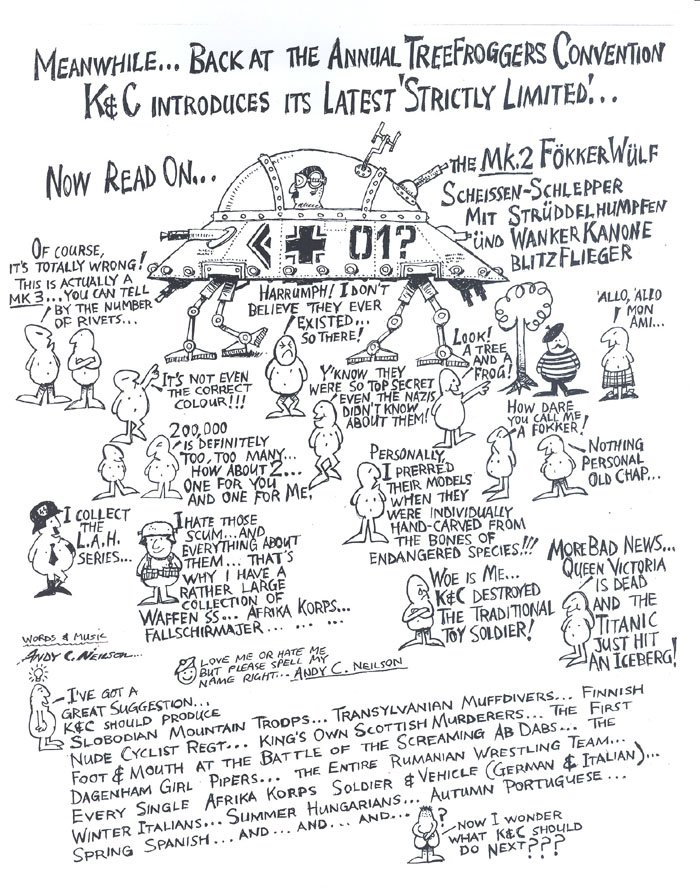 MEANWHILE... BACK AT THE ANNUAL TREEFROGGERS CONVENTION
K&C INTRODUCES ITS LATEST 'STRICTLY LIMITED'...
NOW READ ON...
THE MK.2 FÖKKER WÜLF
SCHEISSEN-SCHLEPPER
MIT STRÜDDELHUMPFEN
ÜND WANKER KANONE
BLITZFLIEGER
01?
OF COURSE,
IT'S TOTALLY WRONG!
THIS IS ACTUALLY A
MK 3... YOU CAN TELL
BY THE NUMBER
OF RIVETS...
HARRUMPH! I DON'T
BELIEVE THEY EVER
EXISTED...
SO THERE!
LOOK!
A TREE
AND A
FROG!
'ALLO, 'ALLO
MON
AMI...
IT'S NOT EVEN
THE CORRECT
COLOUR!!!
Y'KNOW THEY
WERE SO TOP SECRET
EVEN THE NAZIS
DIDN'T KNOW
ABOUT THEM!
HOW DARE
YOU CALL ME
A FOKKER!
200,000
IS DEFINITELY
TOO, TOO MANY...
HOW ABOUT 2...
ONE FOR YOU
AND ONE FOR ME.
NOTHING
PERSONAL
OLD CHAP...
PERSONALLY,
I PRERRED
THEIR MODELS
WHEN THEY
WERE INDIVIDUALLY
HAND-CARVED FROM
THE BONES OF
ENDANGERED SPECIES!!!
I COLLECT
THE
L.A.H.
SERIES...
I HATE THOSE
SCUM...AND
EVERYTHING ABOUT
THEM... THAT'S
WHY I HAVE A
RATHER LARGE
COLLECTION OF
WAFFEN SS... AFRIKA KORPS...
FALLSCHIRMAJER... ... ...
WOE IS ME...
K&C DESTROYED
THE TRADITIONAL
TOY SOLDIER!
MORE BAD NEWS...
QUEEN VICTORIA
IS DEAD
AND THE
TITANIC
JUST HIT
AN ICEBERG!
WORDS & MUSIC
ANDY C. NEILSON...
LOVE ME OR HATE ME
BUT PLEASE SPELL MY
NAME RIGHT... ANDY C. NEILSON
I'VE GOT A
GREAT SUGGESTION...
K&C SHOULD PRODUCE
SLOBODIAN MOUNTAIN TROOPS... TRANSYLVANIAN MUFFDIVERS... FINNISH
NUDE CYCLIST REGT... KING'S OWN SCOTTISH MURDERERS... THE FIRST
FOOT & MOUTH AT THE BATTLE OF THE SCREAMING AB DABS... THE
DAGENHAM GIRL PIPERS... THE ENTIRE RUMANIAN WRESTLING TEAM...
EVERY SINGLE AFRIKA KORPS SOLDIER & VEHICLE (GERMAN & ITALIAN)...
WINTER ITALIANS... SUMMER HUNGARIANS... AUTUMN PORTUGUESE...
SPRING SPANISH... AND... AND... AND...
?
NOW I WONDER
WHAT K&C SHOULD
DO NEXT???